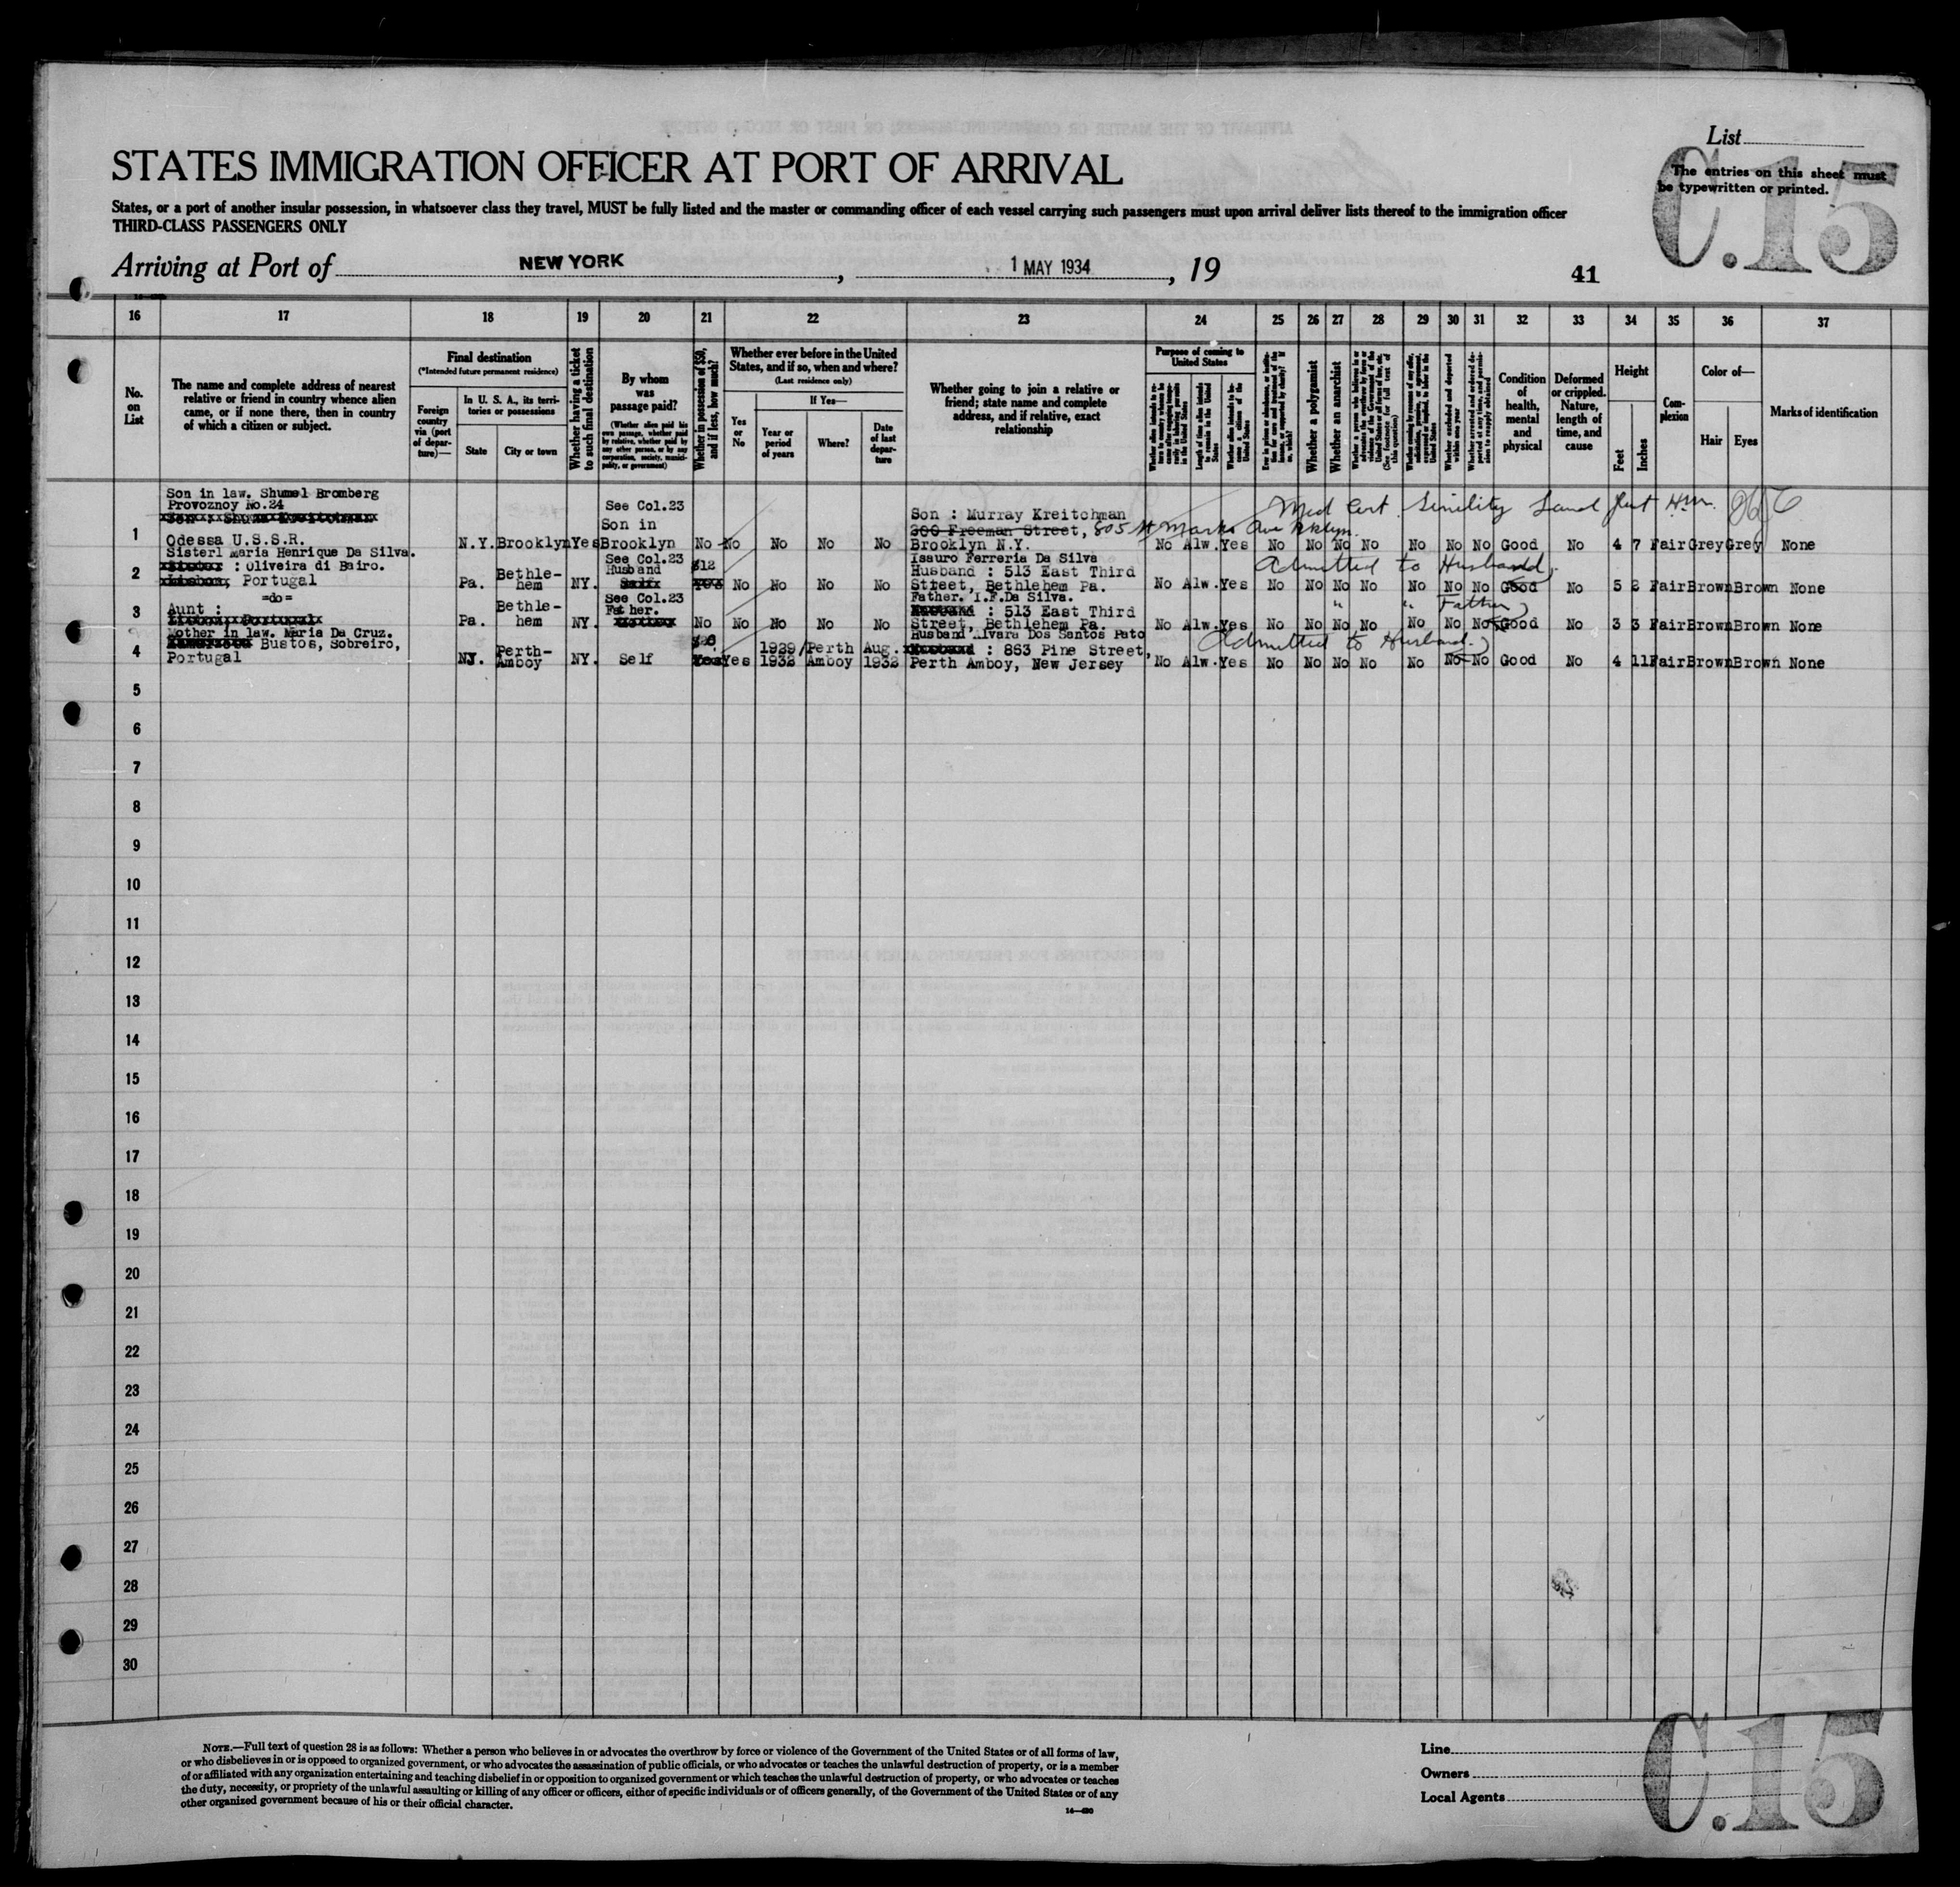 List
The entries on this sheet must
be typewritten or printed.
C.15
STATES IMMIGRATION OFFICER AT PORT OF ARRIVAL
States, or a port of another insular possession, in whatsoever class they travel, MUST be fully listed and the master or commanding officer of each vessel carrying such passengers must upon arrival deliver lists thereof to the immigration officer
THIRD-CLASS PASSENGERS ONLY
Arriving at Port of NEW YORK, 1 MAY 1934, 19
41
16 17 18 19 20 21 22 23 24 25 26 27 28 29 30 31 32 33 34 35 36 37
No. on List
The name and complete address of nearest
relative or friend in country whence alien
came, or if none there, then in country
of which a citizen or subject.
Final destination
(*Intended future permanent residence)
Foreign country via (port of departure)—
In U. S. A., its territories or possessions
State
City or town
Whether having a ticket to such final destination
By whom was passage paid?
(Whether alien paid his own passage, whether paid by relative, whether paid by any other person, or by any corporation, society, municipality, or government)
Whether in possession of $50, and if less, how much?
Whether ever before in the United States, and if so, when and where?
(Last residence only)
Yes or No
If Yes—
Year or period of years
Where?
Date of last departure
Whether going to join a relative or
friend; state name and complete
address, and if relative, exact
relationship
Purpose of coming to United States
Whether a polygamist
Whether an anarchist
Condition of health, mental and physical
Deformed or crippled. Nature, length of time, and cause
Height
Feet
Inches
Complexion
Color of—
Hair
Eyes
Marks of identification
Son in law. Shumel Bromberg
Provoznoy No.24
Odessa U.S.S.R.
1 N.Y. Brooklyn Yes See Col.23 Son in Brooklyn No No No No No
Son : Murray Kreitchman
300 Freeman Street, 805 St Marks Ave Bklyn.
Brooklyn N.Y.
Med Cert. Senility
No Alw. Yes No No No No No No No Good No 4 7 Fair Grey Grey None
Sisterl Maria Henrique Da Silva.
: Oliveira di Bairo.
Lisbon, Portugal
2 Pa. Bethlehem NY. See Col.23 Husband $12 No No No No
Isauro Ferreria Da Silva
Husband : 513 East Third
Street, Bethlehem Pa.
Admitted to Husband.
No Alw. Yes No No No No No No No Good No 5 2 Fair Brown Brown None
=do=
Aunt :
3 Pa. Bethlehem NY. See Col.23 Father. No No No No No
Father. I.F.Da Silva.
: 513 East Third
Street, Bethlehem Pa.
" " Father
No Alw. Yes No No No No No No No Good No 3 3 Fair Brown Brown None
Mother in law. Maria Da Cruz.
Bustos, Sobreiro,
Portugal
4 NJ. Perth-Amboy NY. Self Yes Yes 1929/1932 Perth Amboy Aug. 1932
Husband Alvara Dos Santos Pato
: 863 Pine Street,
Perth Amboy, New Jersey
Admitted to Husband.
No Alw. Yes No No No No No No No Good No 4 11 Fair Brown Brown None
5
6
7
8
9
10
11
12
13
14
15
16
17
18
19
20
21
22
23
24
25
26
27
28
29
30
NOTE.—Full text of question 28 is as follows: Whether a person who believes in or advocates the overthrow by force or violence of the Government of the United States or of all forms of law,
or who disbelieves in or is opposed to organized government, or who advocates the assassination of public officials, or who advocates or teaches the unlawful destruction of property, or is a member
of or affiliated with any organization entertaining and teaching disbelief in or opposition to organized government or which teaches the unlawful destruction of property, or who advocates or teaches
the duty, necessity, or propriety of the unlawful assaulting or killing of any officer or officers, either of specific individuals or of officers generally, of the Government of the United States or of any
other organized government because of his or their official character.
14—490
Line
Owners
Local Agents
C.15